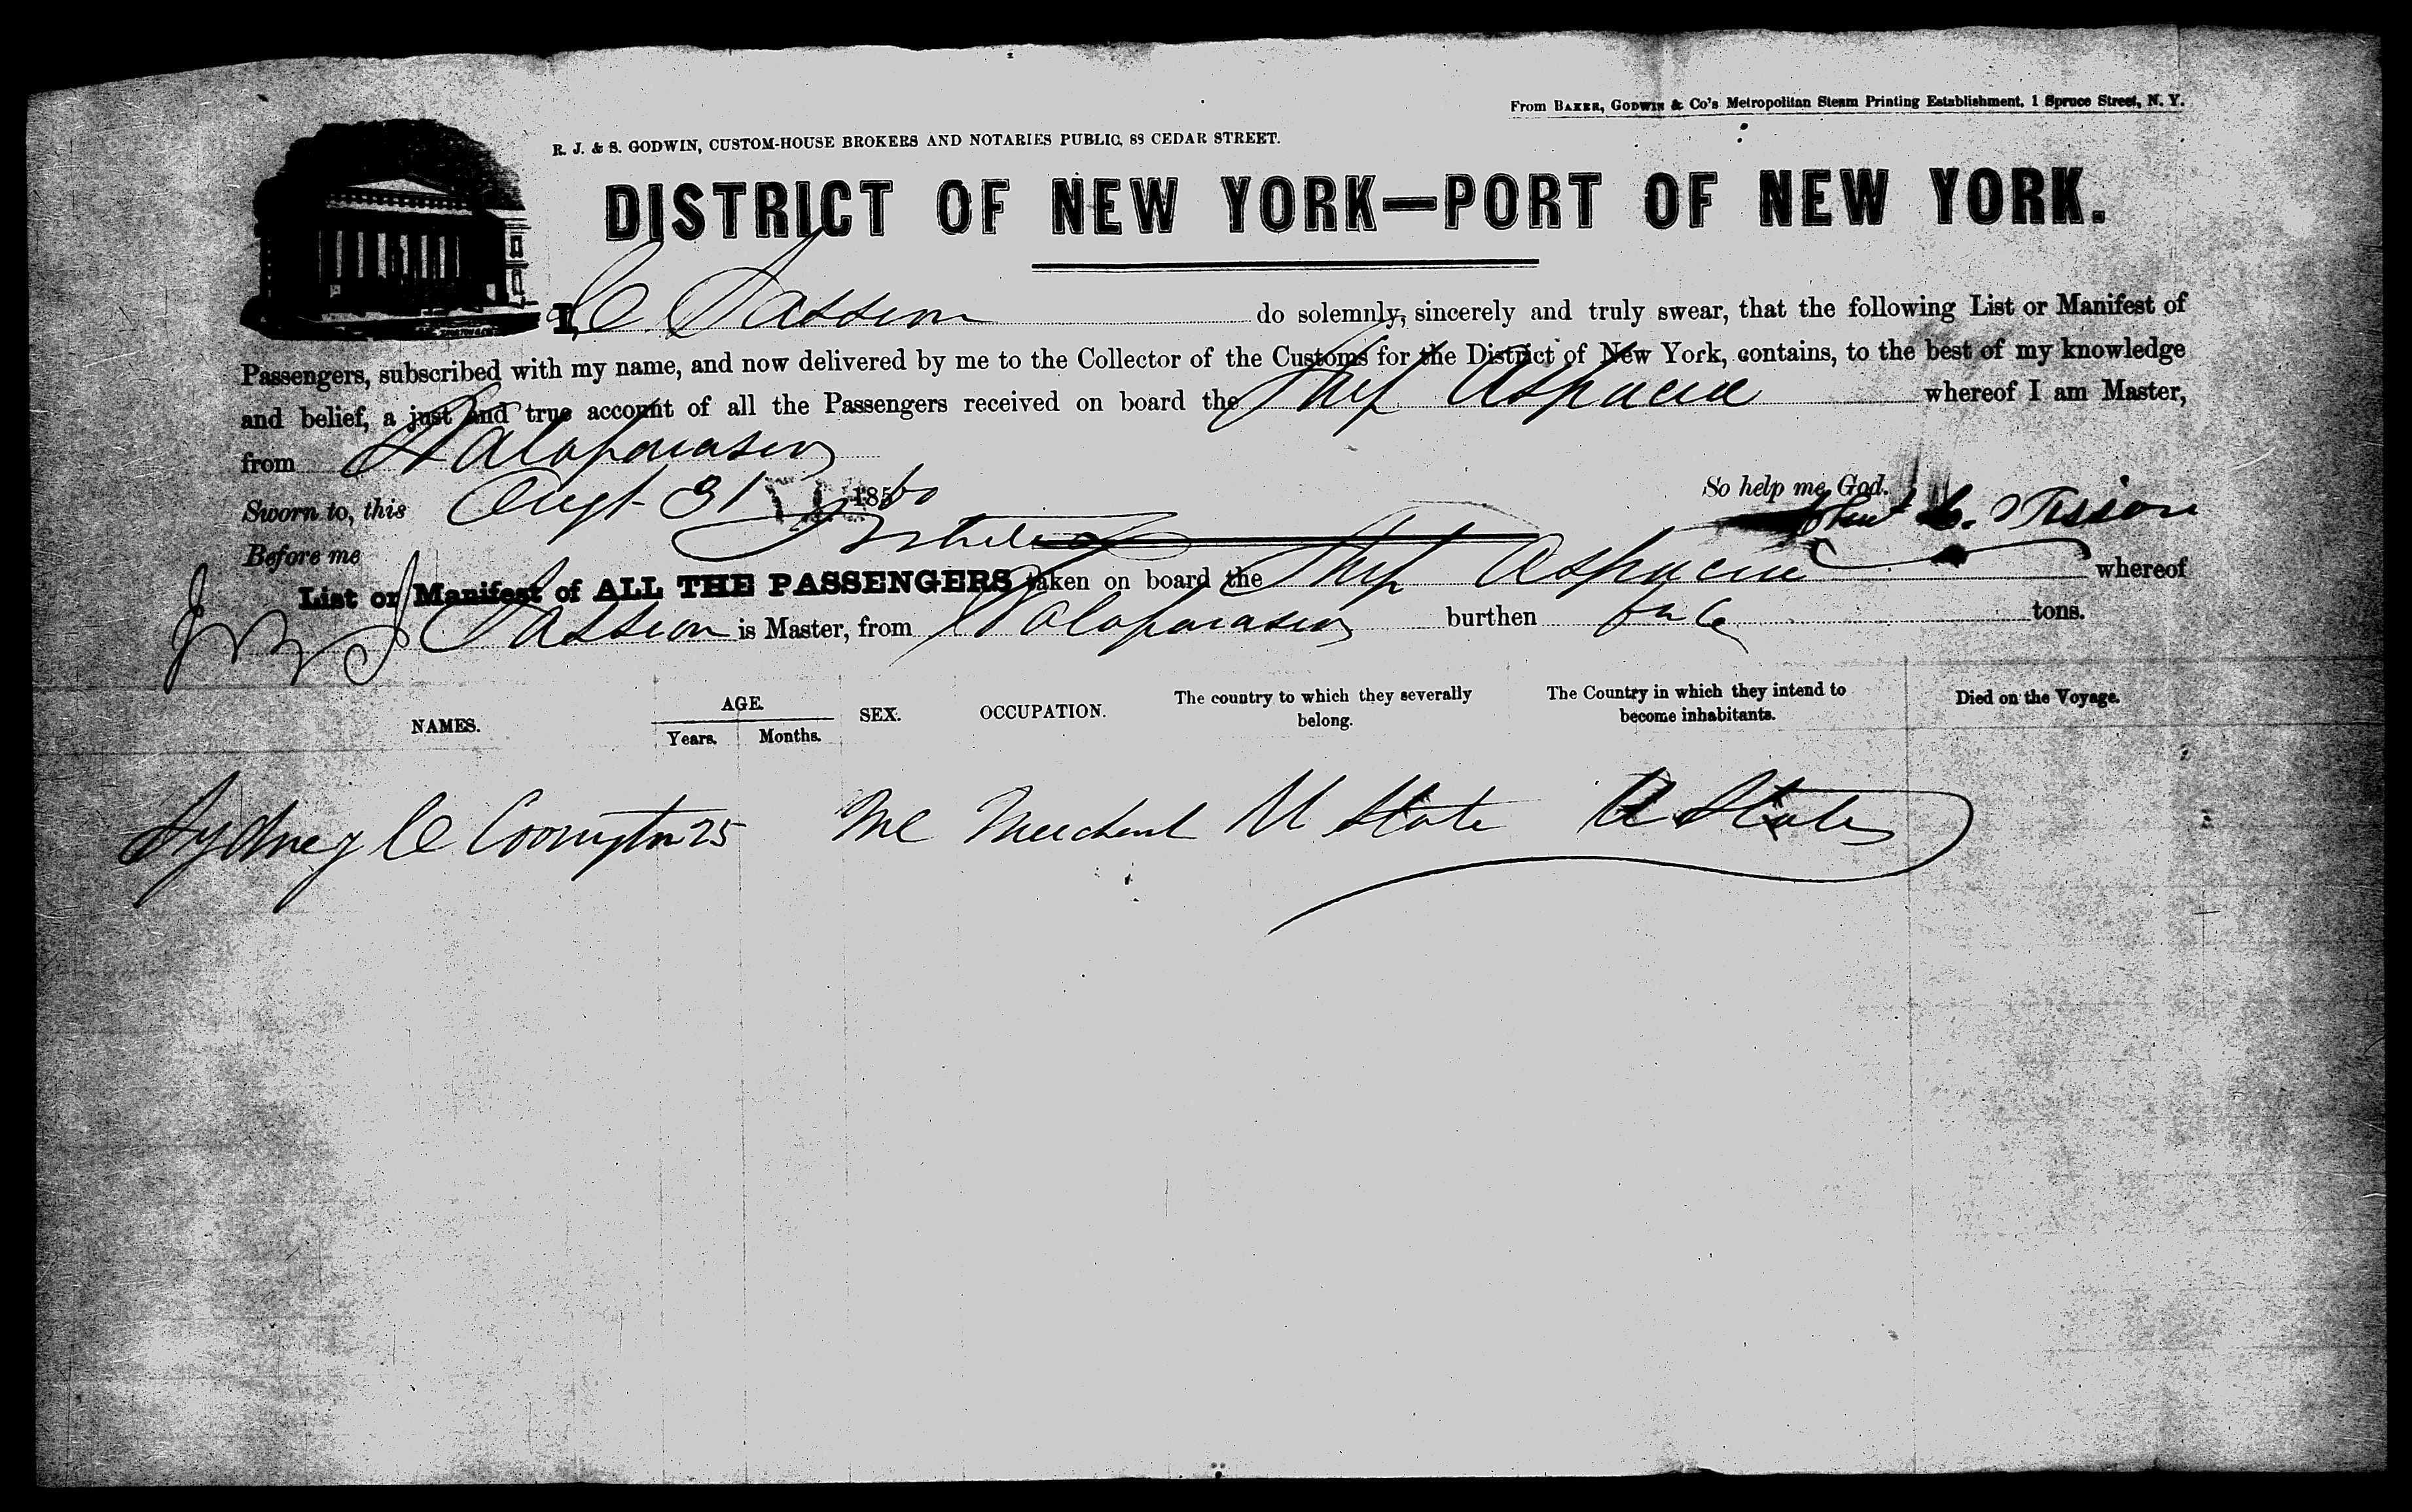 From BAKER, GODWIN & Co's Metropolitan Steam Printing Establishment, 1 Spruce Street, N. Y.
R. J. & S. GODWIN, CUSTOM-HOUSE BROKERS AND NOTARIES PUBLIC, 88 CEDAR STREET.
DISTRICT OF NEW YORK—PORT OF NEW YORK.
I, C. Sisson do solemnly, sincerely and truly swear, that the following List or Manifest of
Passengers, subscribed with my name, and now delivered by me to the Collector of the Customs for the District of New York, contains, to the best of my knowledge
and belief, a just and true account of all the Passengers received on board the Ship Aspacia whereof I am Master,
from Valaparaiso
So help me God.
Sworn to, this Augt 31 1860 C. Sisson
Before me
List or Manifest of ALL THE PASSENGERS taken on board the Ship Aspacia whereof
Sisson is Master, from Valaparaiso burthen tons.
NAMES. AGE. Years. Months. SEX. OCCUPATION. The country to which they severally belong. The Country in which they intend to become inhabitants. Died on the Voyage.
Sydney C 25 Me Merchant U State U States